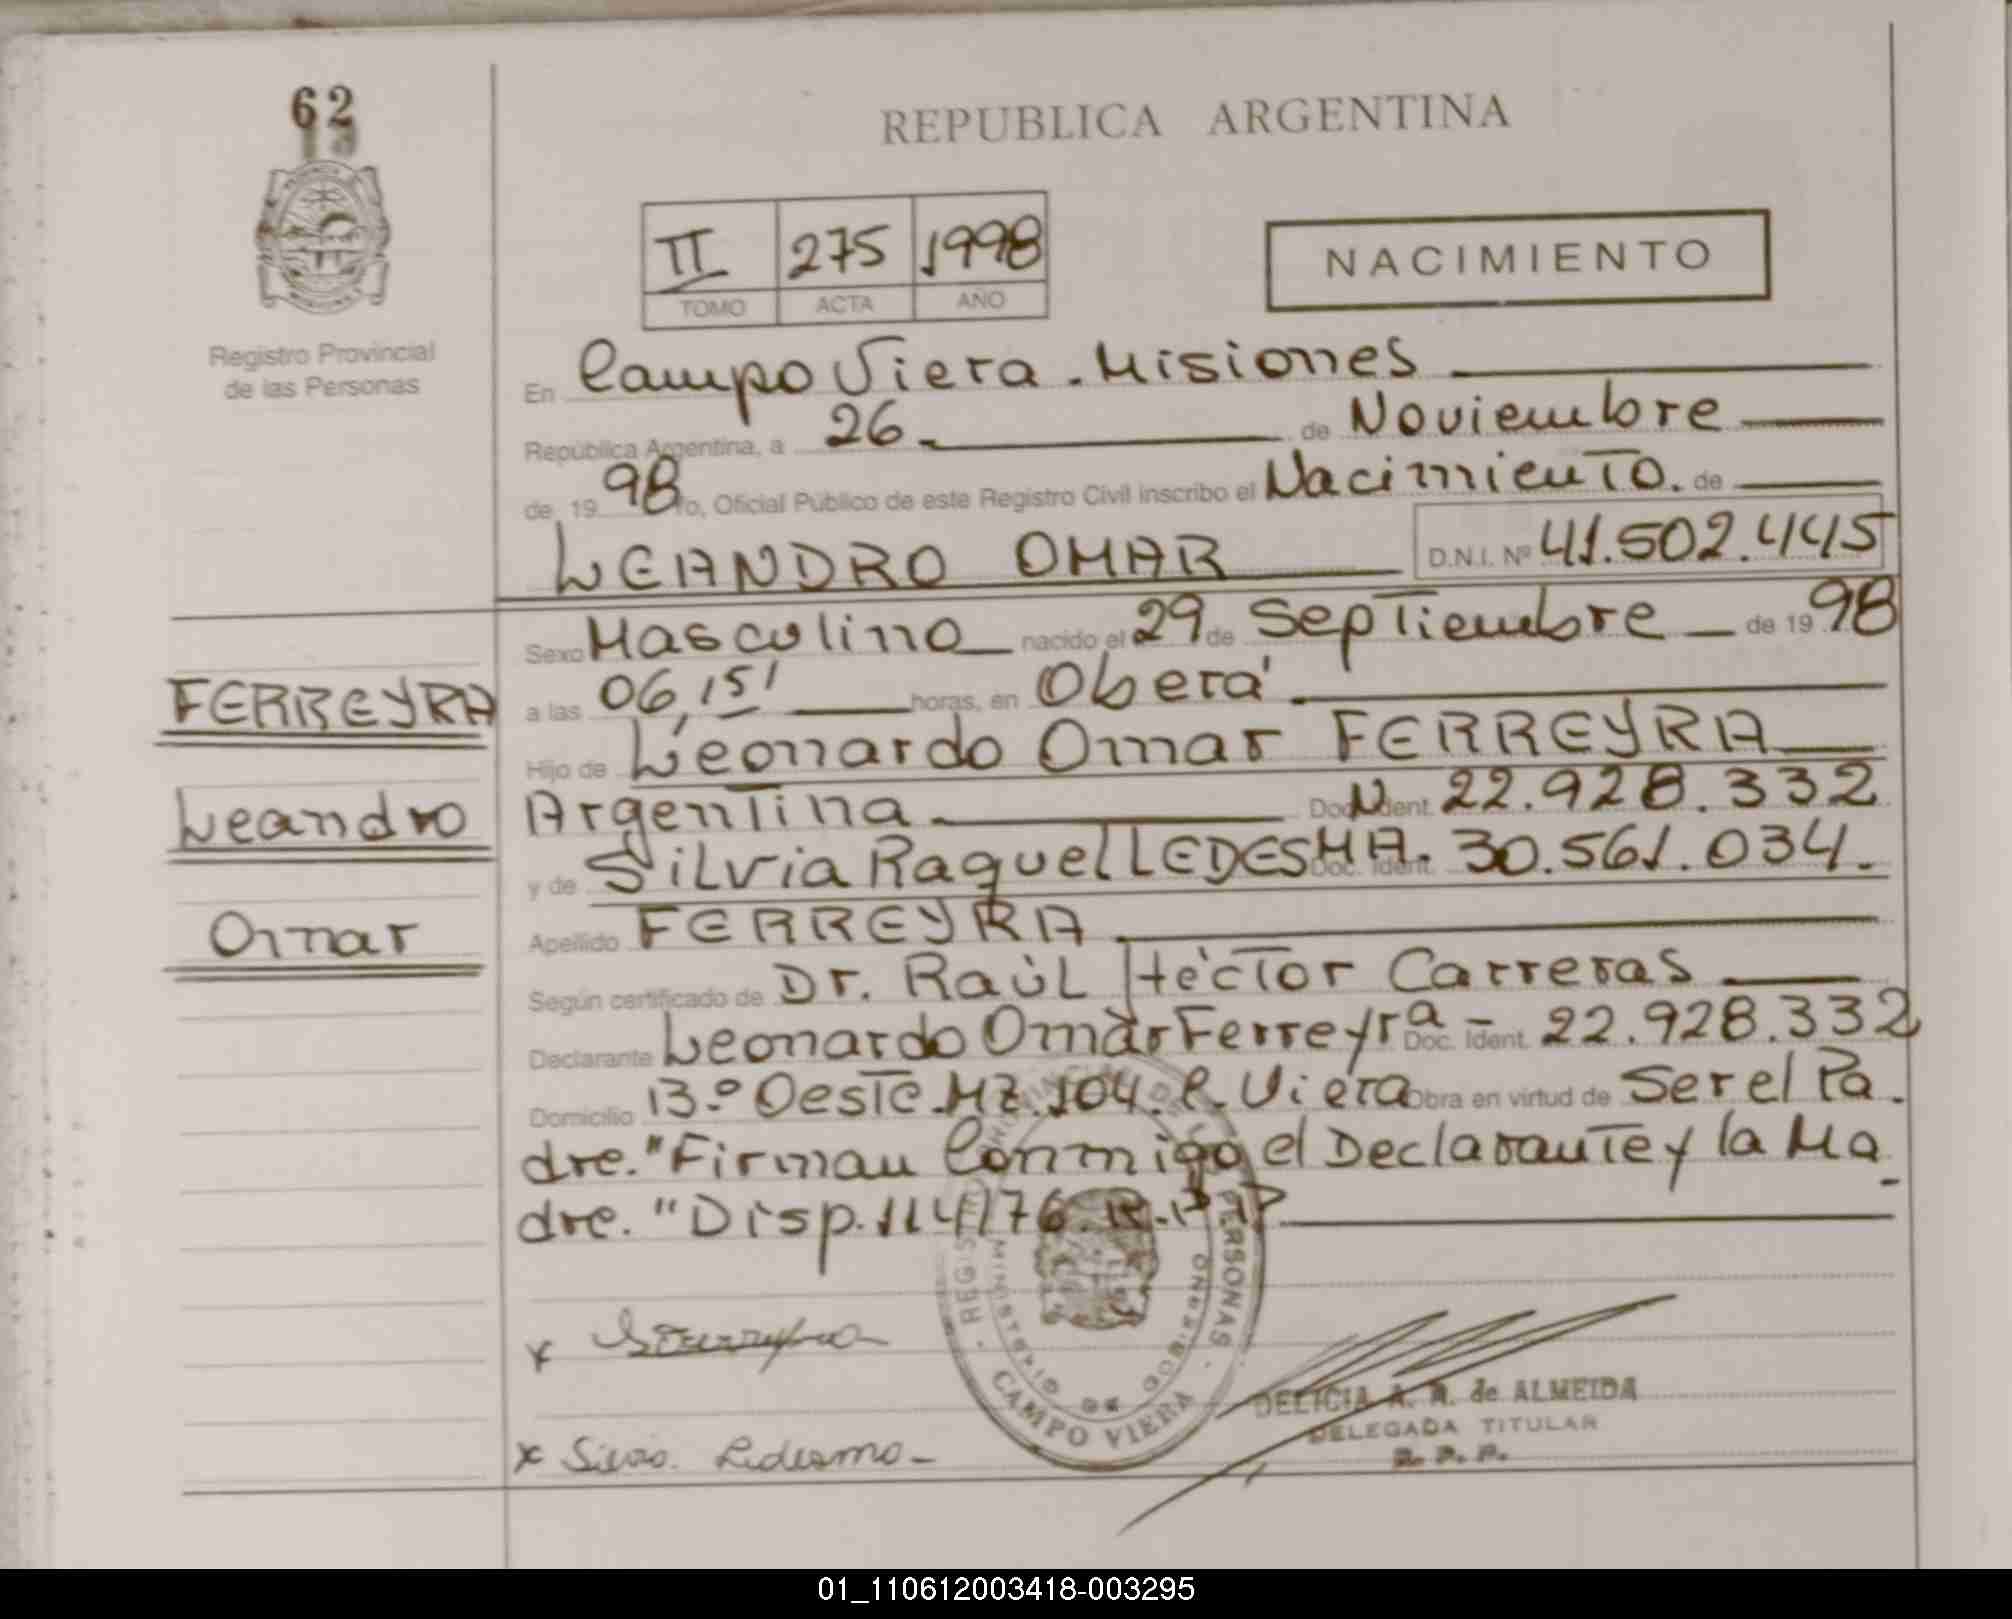 62
REPUBLICA ARGENTINA
II 275 1998
TOMO ACTA AÑO
NACIMIENTO
Registro Provincial
de las Personas
En Campo Viera. Misiones
República Argentina, a 26 de Noviembre
de 1998 Yo, Oficial Público de este Registro Civil inscribo el Nacimiento. de
LEANDRO OMAR D.N.I. Nº 41.502.445
Sexo Masculino nacido el 29 de Septiembre de 1998
a las 06,15' horas, en Oberá
Hijo de Leonardo Omar FERREYRA
Argentina Doc. Ident. 22.928.332
y de Silvia Raquel LEDESMA. Doc. Ident. 30.561.034.
Apellido FERREYRA
Según certificado de Dr. Raúl Héctor Carreras
Declarante Leonardo Omar Ferreyra Doc. Ident. 22.928.332
Domicilio 13.º Oeste. Mz. 104. C. Viera Obra en virtud de Ser el Pa.
dre. "Firman Conmigo el Declarante y la Ma
dre. "Disp. 114/76. R.P.P
FERREYRA
Leandro
Omar
REGISTRO PROVINCIAL DE LAS PERSONAS
MINISTERIO DE GOBIERNO
CAMPO VIERA
x
x Silvia. Ledesma
DELICIA A. R. de ALMEIDA
DELEGADA TITULAR
R. P. P.
01_110612003418-003295